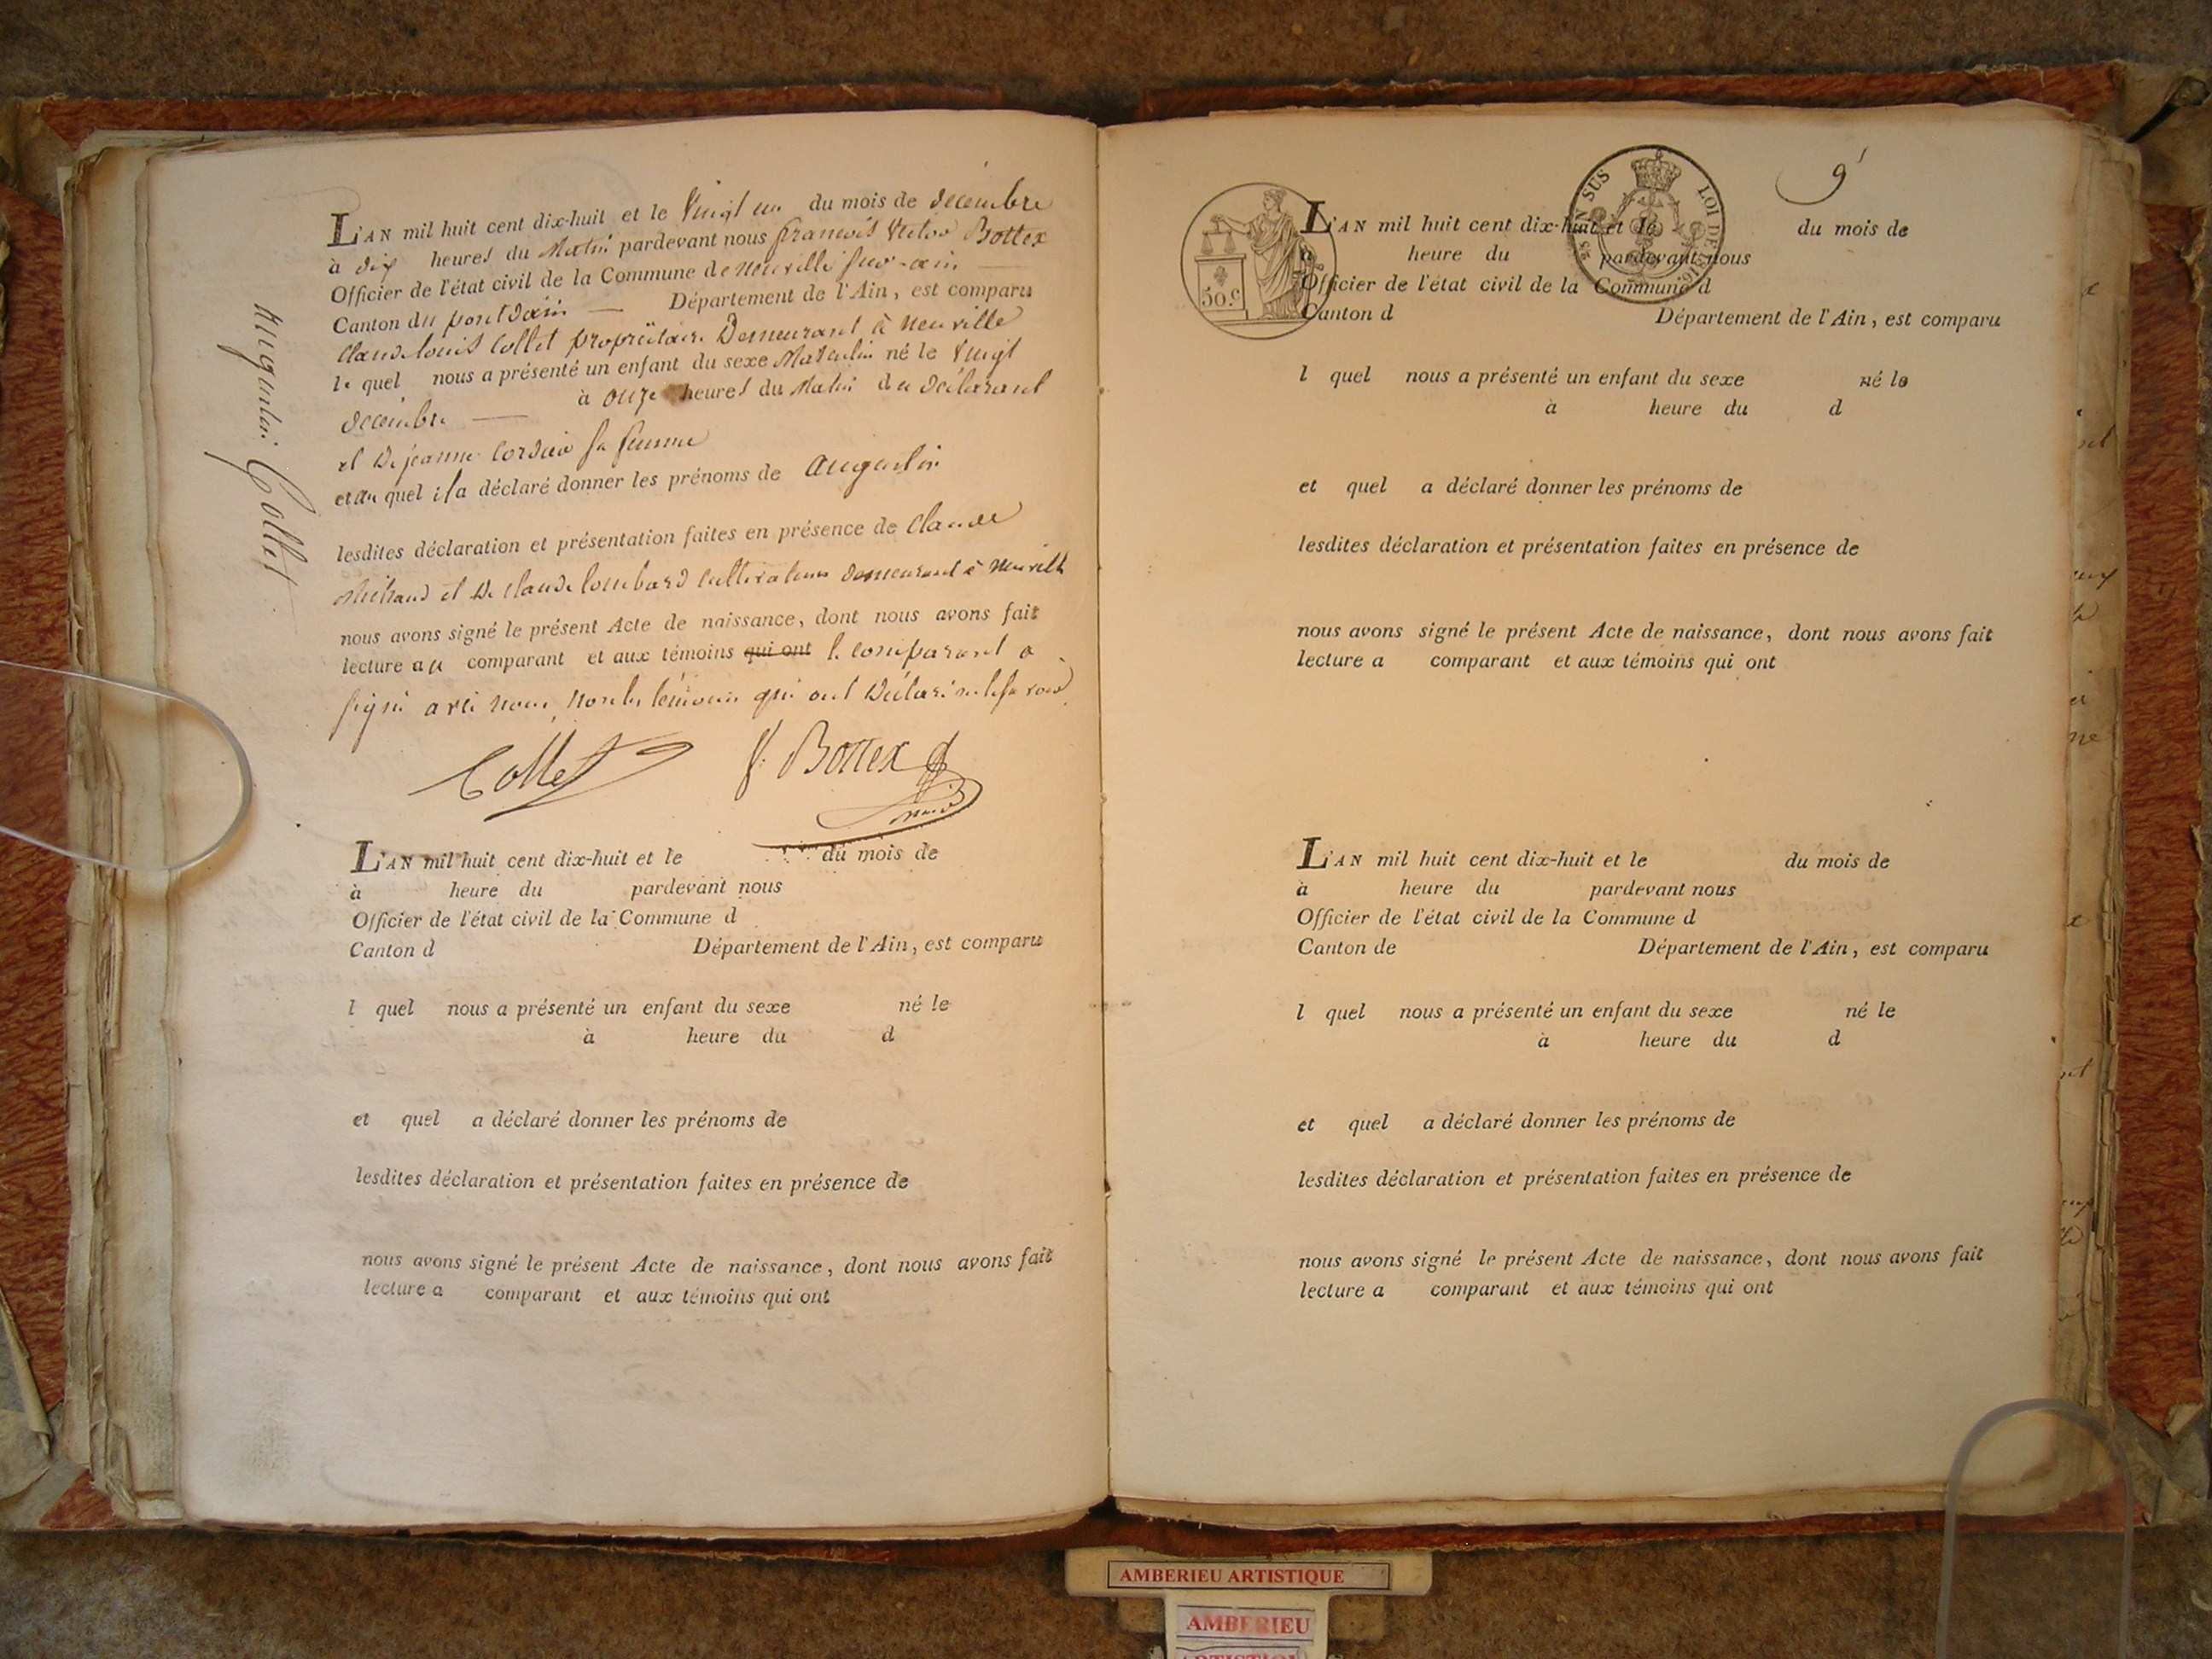 L'AN mil huit cent dix-huit et le Vingt un du mois de decembre
à dix heures du Matin pardevant nous françois Victor Bottex
Officier de l'état civil de la Commune de neuville sur-ain
Canton du pont d'ain Département de l'Ain, est comparu
Claude louis Collet propriétaire Demeurant à neuville
le quel nous a présenté un enfant du sexe Masculin né le Vingt
decembre à onze heures du Matin du déclarant
et De jeanne Cordier sa femme
et au quel il a déclaré donner les prénoms de augustin
lesdites déclaration et présentation faites en présence de Claude
Michaud et De Claude lombard cultivateurs demeurant à neuville
nous avons signé le présent Acte de naissance, dont nous avons fait
lecture au comparant et aux témoins qui ont le comparant a
signé avec nous, non les témoins qui ont Déclaré ne le savoir
Collet f. Bottex
Augustin Collet
L'AN mil huit cent dix-huit et le du mois de
à heure du pardevant nous
Officier de l'état civil de la Commune d
Canton d Département de l'Ain, est comparu
l quel nous a présenté un enfant du sexe né le
à heure du d
et quel a déclaré donner les prénoms de
lesdites déclaration et présentation faites en présence de
nous avons signé le présent Acte de naissance, dont nous avons fait
lecture a comparant et aux témoins qui ont
9
50.c
EN SUS LOI DE 1816
L'AN mil huit cent dix-huit et le du mois de
à heure du pardevant nous
Officier de l'état civil de la Commune d
Canton d Département de l'Ain, est comparu
l quel nous a présenté un enfant du sexe né le
à heure du d
et quel a déclaré donner les prénoms de
lesdites déclaration et présentation faites en présence de
nous avons signé le présent Acte de naissance, dont nous avons fait
lecture a comparant et aux témoins qui ont
L'AN mil huit cent dix-huit et le du mois de
à heure du pardevant nous
Officier de l'état civil de la Commune d
Canton de Département de l'Ain, est comparu
l quel nous a présenté un enfant du sexe né le
à heure du d
et quel a déclaré donner les prénoms de
lesdites déclaration et présentation faites en présence de
nous avons signé le présent Acte de naissance, dont nous avons fait
lecture a comparant et aux témoins qui ont
AMBERIEU ARTISTIQUE
AMBERIEU
ARTISTIQUE